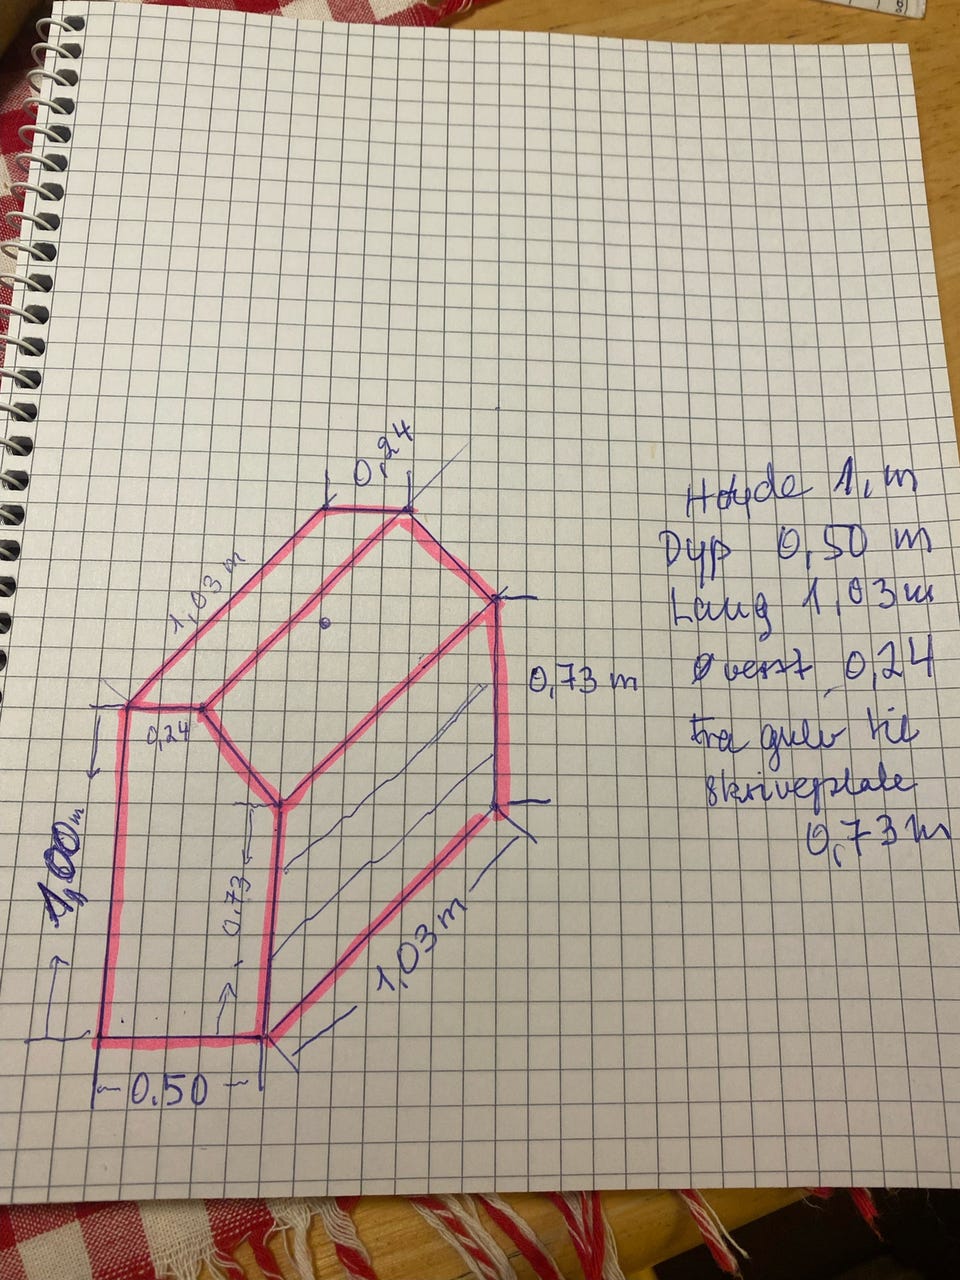 0,24
1,03 m
0,24
0,73 m
1,00 m
0,73
1,03 m
0.50
Høyde 1, m
Dyp 0,50 m
Lang 1,03 m
Øverst 0,24
Fra gulv til
skriveplate
0,73 m